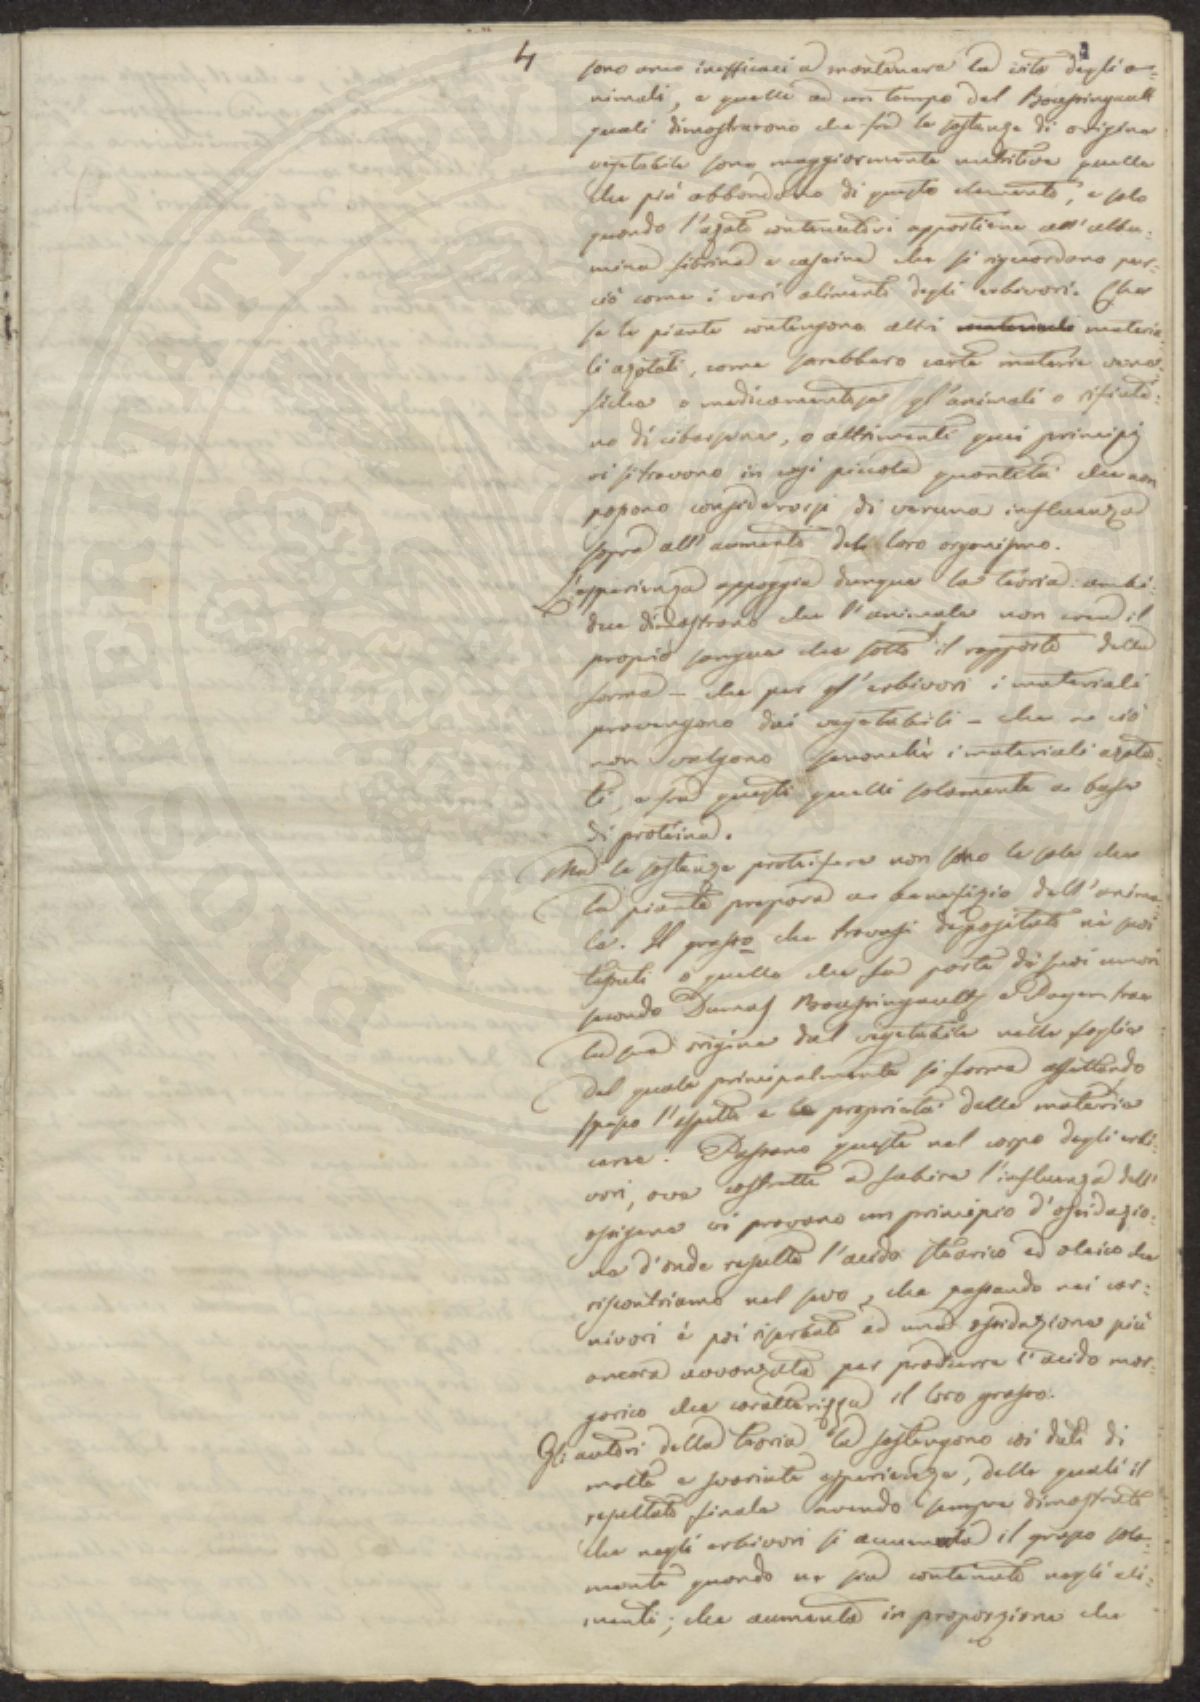 4
sono anco inefficaci a mantenere la vita degli a=
nimali, e quelle ad un tempo del Boussingault
quali dimostrarono che fra le sostanze di origine
vegetabile sono maggiormente nutritive quelle
che più abbondano di questo elemento, e solo
quando l'azoto contenutovi appartiene all'albu=
mina fibrina e caseina che si riguardano per=
ciò come i veri alimenti degli erbivori. Che
se le piante contengono altri materiali materia=
li azotati, come sarebbero certe materie vene=
fiche o medicamentose gl'animali o rifiuta=
no di cibarsene, o altrimenti quei principj
vi si trovano in così piccola quantità che non
possono considerarsi di veruna influenza
sopra all'aumento del loro organismo.
L'esperienza appoggia dunque la teoria: ambi=
due dimostrano che l'animale non crea il
proprio sangue che sotto il rapporto della
forma – che per gl'erbivori i materiali
provengono dai vegetabili – che a ciò
non valgono senonchè i materiali azota=
ti, e fra questi quelli solamente a base
di proteina.
Ma le sostanze proteifere non sono le sole che
la pianta prepara a benefizio dell'anima=
le. Il grasso che trovasi depositato nè suoi
tessuti o quello che fa parte dè suoi umori
secondo Dumas Boussingault e Payen trae
la sua origine dal vegetabile nelle foglie
del quale principalmente si forma affettando
spesso l'aspetto e le proprietà delle materie
ceree. Passano queste nel corpo degli erbi=
vori, ove costrette a subire l'influenza dell'
ossigene vi provano un principio d'ossidazio=
ne d'onde resulta l'acido stearico ed oleico che
riscontriamo nel sevo, che passando nei car=
nivori è poi riserbato ad una ossidazione più
ancora avvanzata per produrre l'acido mar=
garico che caratterizza il loro grasso.
Gli autori della teoria la sostengono coi dati di
molte e svariate esperienze, delle quali il
resultato finale avendo sempre dimostrato
che negli erbivori si accumula il grasso sola=
mente quando ne sia contenuto negli ali=
menti; che aumenta in proporzione che